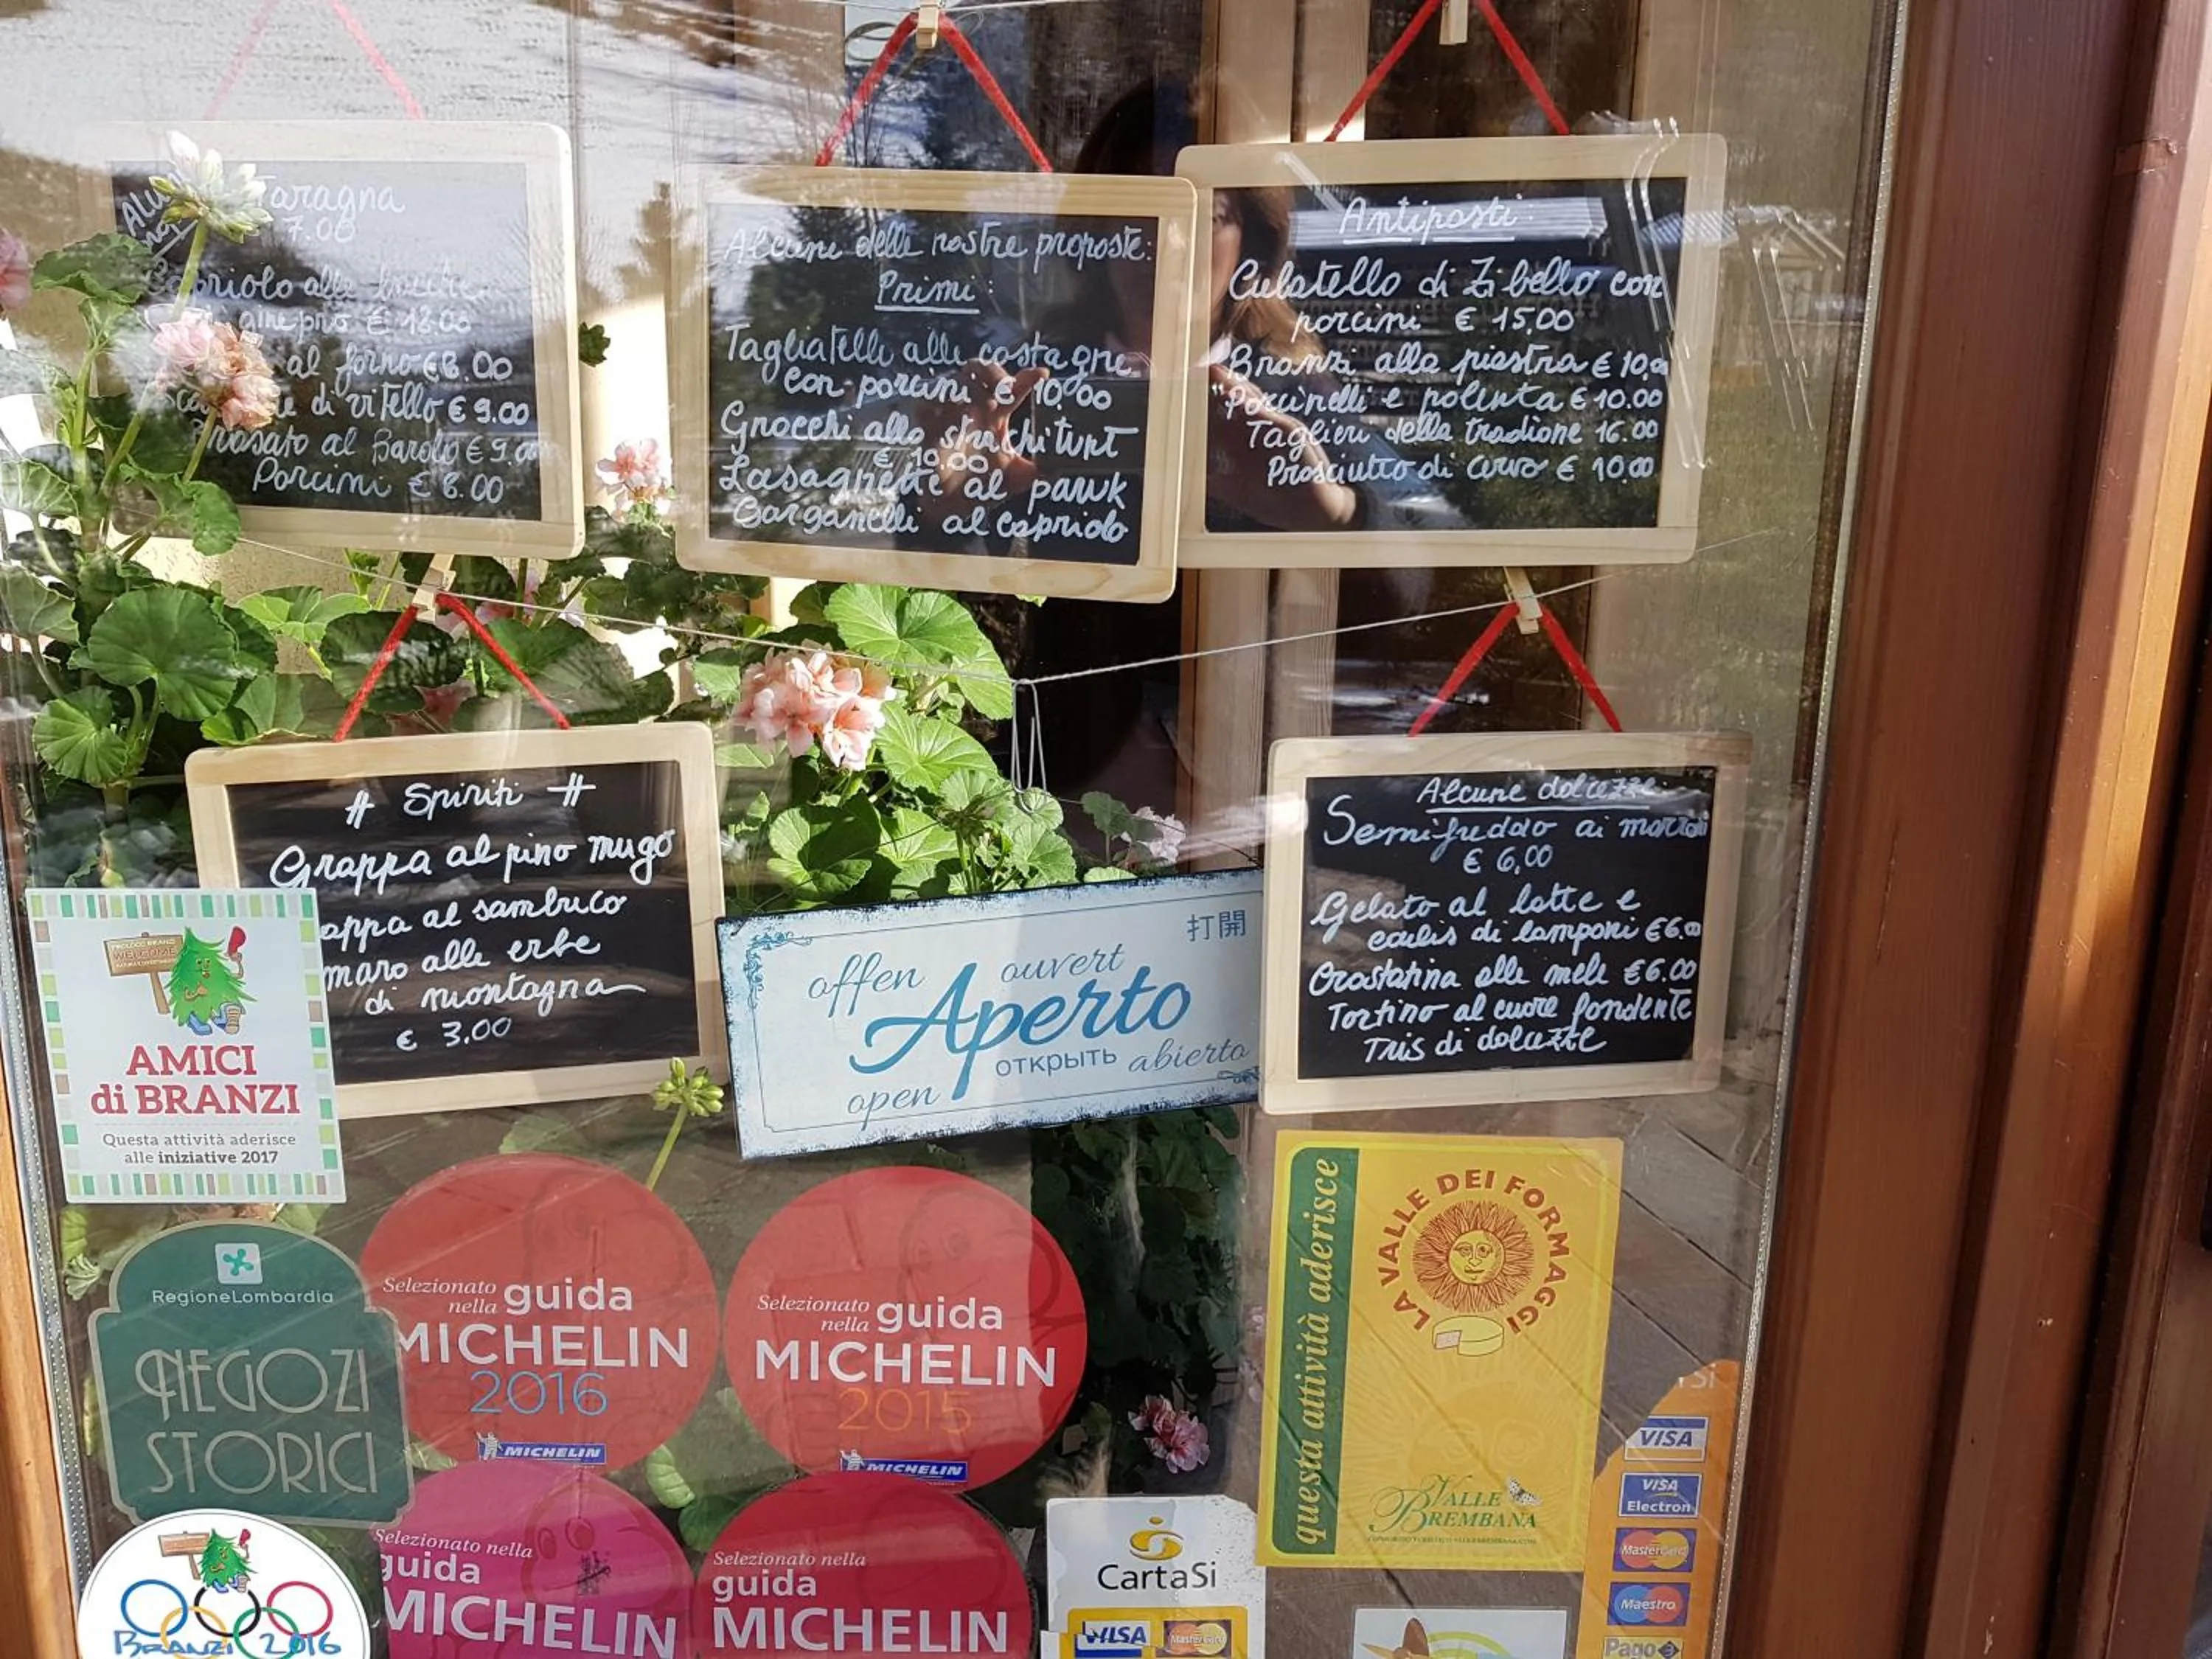 Taragna
7.00
Capriolo alle bacche
ginepro € 12.00
al forno € 8.00
di vitello € 9.00
Brasato al Barolo € 9.00
Porcini € 8.00
Alcune delle nostre proposte:
Primi:
Tagliatelle alle castagne
con porcini € 10.00
Gnocchi allo strachitunt
€ 10.00
Lasagnette al pawk
Garganelli al capriolo
Antipasti:
Culatello di Zibello con
porcini € 15,00
Branzi alla piastra € 10,00
"Porcinelli e polenta € 10.00
Taglieri della tradione 16.00
Prosciutto di cervo € 10,00
# Spiriti #
Grappa al pino mugo
appa al sambuco
maro alle erbe
di montagna
€ 3.00
Alcune dolcezze:
Semifreddo ai marroni
€ 6,00
Gelato al latte e
coulis di lamponi € 6.00
Crostatina alle mele € 6.00
Tortino al cuore fondente
Tris di dolcezze
打開
offen ouvert
Aperto
открыть abierto
open
PROLOCO BRANZI
WELCOME
AMICI
di BRANZI
Questa attività aderisce
alle iniziative 2017
RegioneLombardia
NEGOZI
STORICI
Selezionato
nella guida
MICHELIN
2016
MICHELIN
Selezionato
nella guida
MICHELIN
2015
MICHELIN
Selezionato nella
guida
MICHELIN
Selezionato nella
guida
MICHELIN
BRANZI 2016
questa attività aderisce
LA VALLE DEI FORMAGGI
VALLE
BREMBANA
CartaSi
VISA
MasterCard
VISA
VISA
Electron
MasterCard
Maestro
Pago